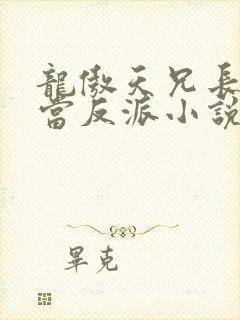 龍傲天兄長
當反派小說
畢克